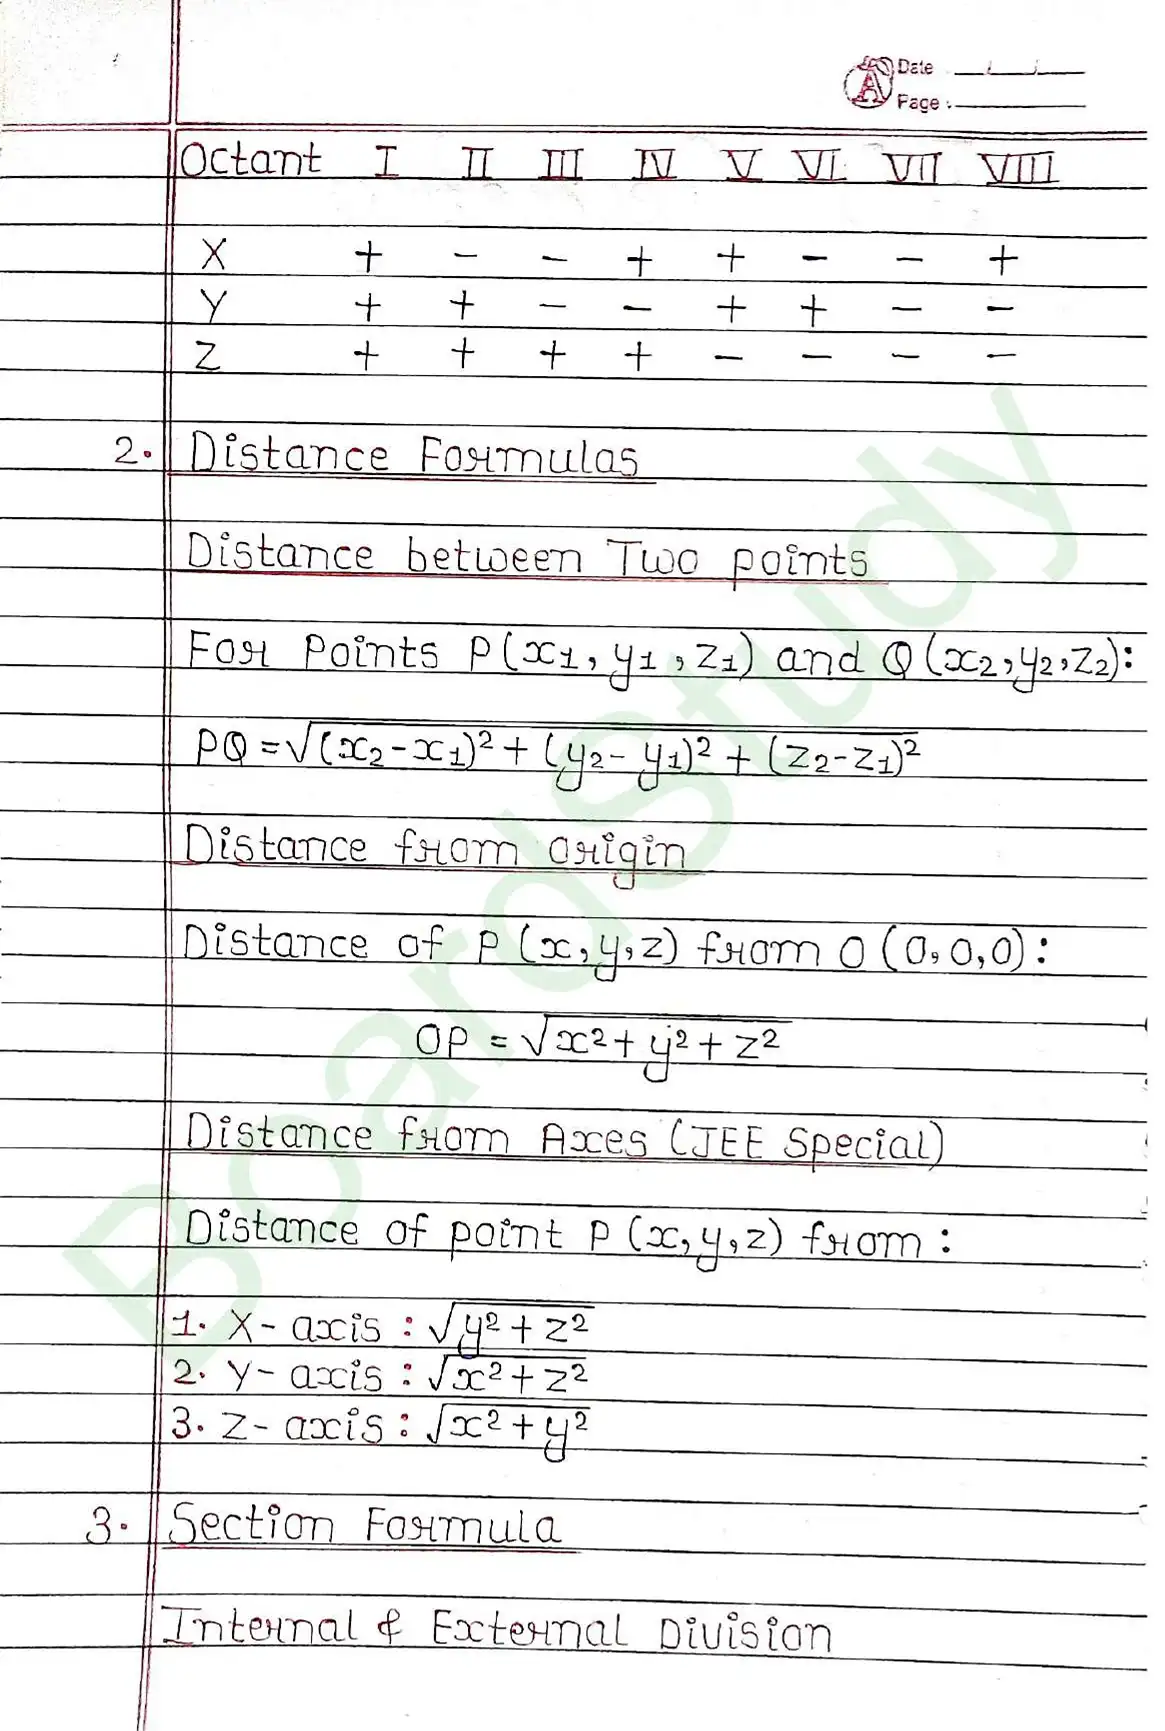 Date
Page :
Octant I II III IV V VI VII VIII
X + - - + + - - +
Y + + - - + + - -
Z + + + + - - - -
2. Distance Formulas
Distance between Two points
For Points P(x1, y1, z1) and Q(x2, y2, z2):
PQ = √(x2-x1)² + (y2-y1)² + (z2-z1)²
Distance from origin
Distance of P(x, y, z) from O (0, 0, 0):
OP = √x² + y² + z²
Distance from Axes (JEE Special)
Distance of point P(x, y, z) from:
1. X-axis : √y² + z²
2. Y-axis : √x² + z²
3. Z-axis : √x² + y²
3. Section Formula
Internal & External Division
BoardStudy